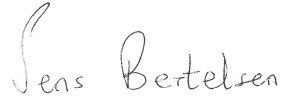 Jens Bertelsen